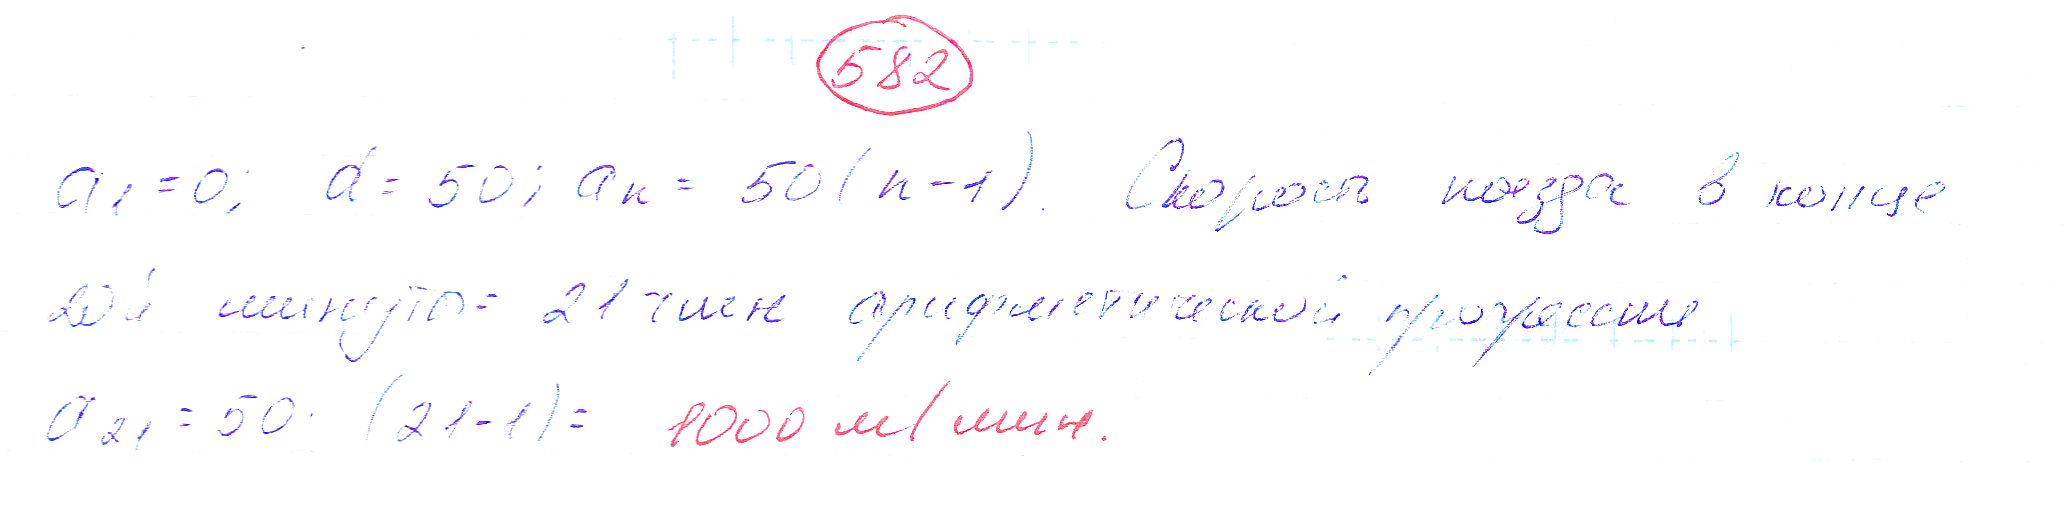 582
a₁=0; d=50; aₙ= 50(n-1). Скорость поезда в конце
20й минуты= 21 член арифметической прогрессии
a₂₁=50· (21-1)= 1000 м/мин.